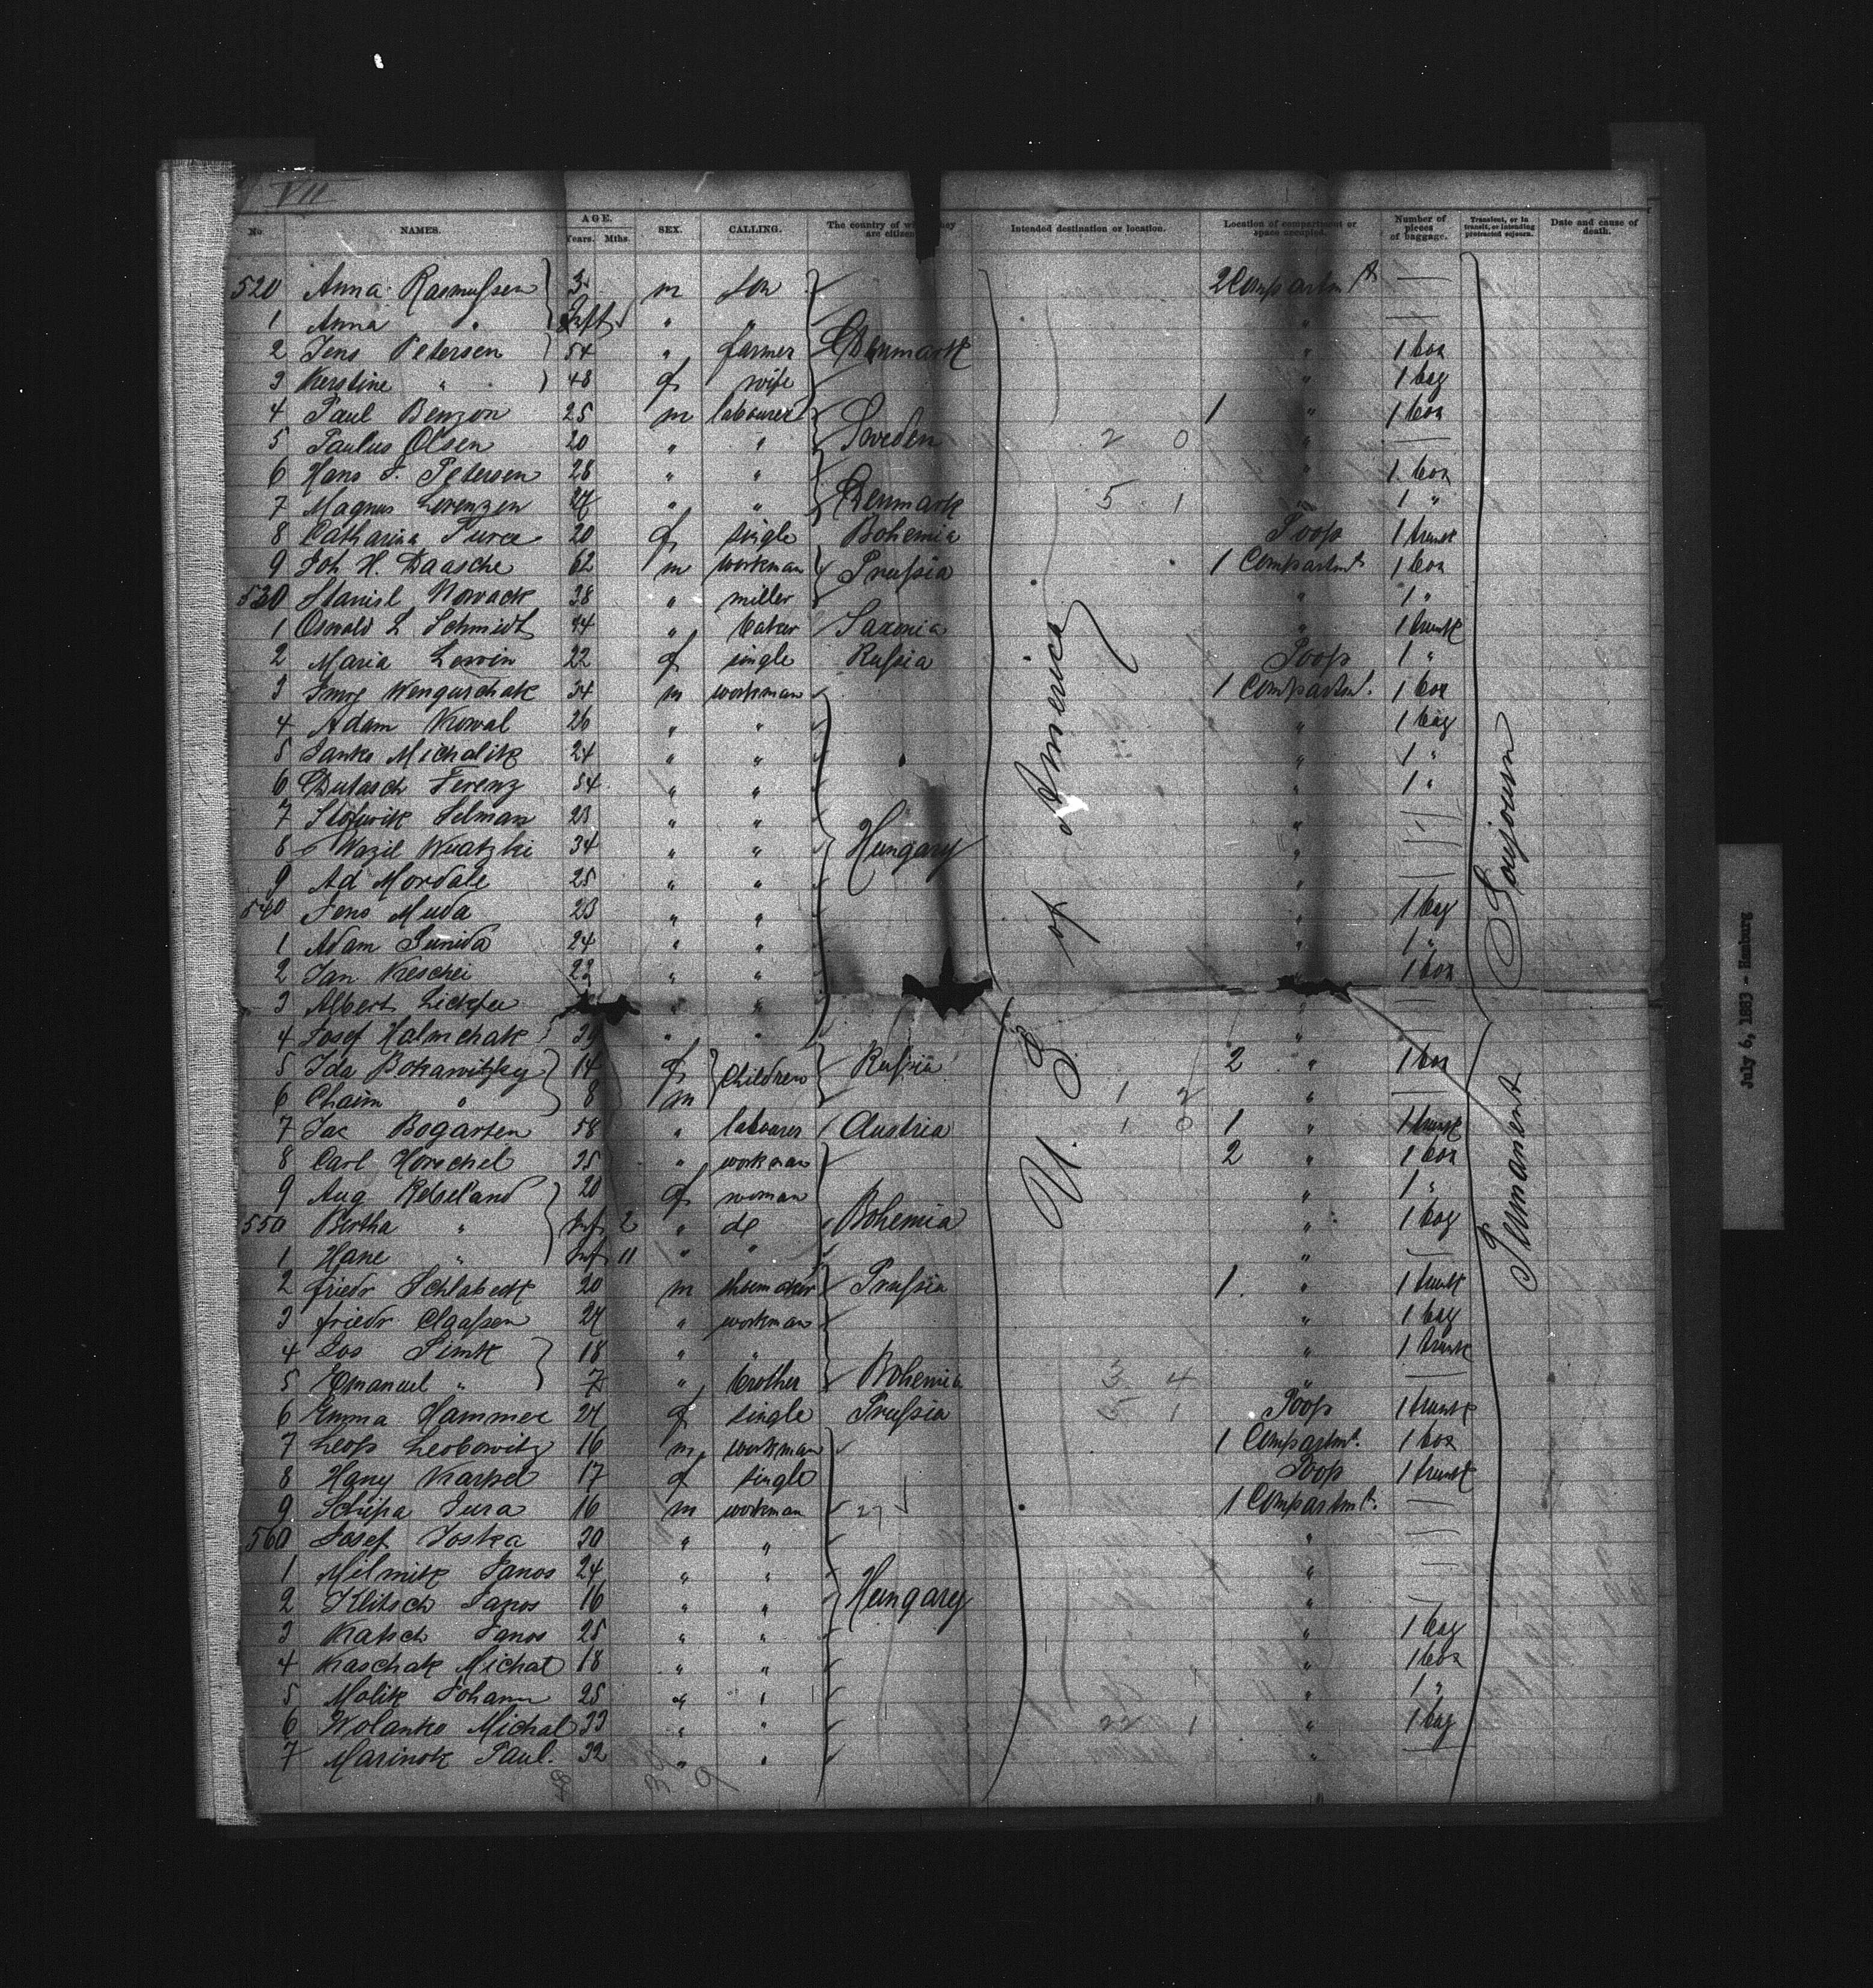 VII
No NAMES. AGE. Years. Mths. SEX. CALLING. The country of w hey are citizen Intended destination or location. Location of compartment or space occupied. Number of pieces of baggage. Transient, or in transit, or intending protracted sojourn. Date and cause of death.
520 Anna Rasmussen 3 m son 2 Compartmts
1 Anna " Inft " "
2 Jens Petersen 54 " farmer Denmark " 1 box
3 Kerstine " 48 f wife " 1 bag
4 Paul Benzon 25 m labourer 1 " 1 box
5 Paulus Olsen 20 " " Sweden 2 0 "
6 Hans J. Petersen 28 " " " 1 box
7 Magnus Lorenzen 27 " " Denmark 5 1 " 1 "
8 Catharina 20 f single Bohemia Poop 1 trunk
9 Joh H. Daasche 62 m workman Prussia 1 Compartmt. 1 box
530 Stanisl Nowack 38 " miller " 1 "
1 Oswald L Schmidt 44 " baker Saxonia " 1 trunk
2 Maria Lewin 22 f single Russia Poop 1 "
3 Imry Wengurchak 34 m workman 1 Compartmt. 1 box
4 Adam Kowal 26 " " " 1 bag
5 Janko Michalik 24 " " " 1 "
6 Dutasch Ferenz 54 " " " 1 "
7 Selman 23 " " "
8 Wazil 34 " " Hungary "
9 Ad Mordale 25 " " "
540 Jens Muda 23 " " " 1 bag
1 Adam 24 " " " 1 "
2 Jan Keschei 22 " " " 1 box
3 Albert " "
4 Josef Halmchak " " "
5 Ida Bokawitzky 14 f Children Russia 2 " 1 box
6 Chaim " 8 m 1 2 "
7 Jac Bogarten 58 " labourer Austria 1 0 1 " 1 trunk
8 Carl Horschel 35 " workman 2 " 1 box
9 Aug 20 f woman " 1 "
550 Bertha " Inf 2 " do Bohemia " 1 bag
1 Hane " Inf 11 " " "
2 Friedr Schlabeck 20 m shoemaker Prussia 1 " 1 trunk
3 Friedr Claassen 24 " workman " 1 bag
4 Jos Simk 18 " " " 1 trunk
5 Emanuel " 7 " brother Bohemia 3 4 "
6 Emma Hammer 24 f single Prussia 5 1 Poop 1 trunk
7 Leop Leobowitz 16 m workman 1 Compartmt. 1 box
8 Hany Karpel 17 f single Poop 1 trunk
9 Schipa Jura 16 m workman 27 1 Compartmt.
560 Josef Joska 30 " " "
1 Milmik Janos 24 " " "
2 Klitsch Janos 16 " " Hungary "
3 Katsch Janos 25 " " " 1 bag
4 Kaschak Michal 18 " " " 1 box
5 Molik Johann 25 " " " 1 "
6 Wolanko Michal 33 " " 22 1 " 1 bag
7 Marinok Paul. 32 " " "
U. S. of America
Permanent Soujourn
July 6, 1883 - Hamburg